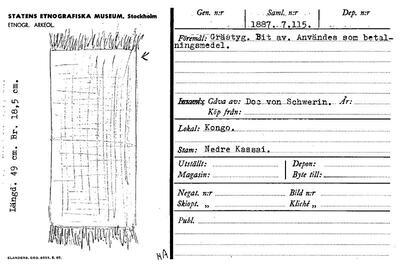 STATENS ETNOGRAFISKA MUSEUM, Stockholm
ETNOGR. ARKEOL.
Längd. 49 cm. Br. 18,5 cm.
ELANDERS, GBG.
HA
Gen. n:r Saml. n:r Dep. n:r
1887. 7.115.
Föremål: Grästyg. Bit av. Användes som betal-
ningsmedel.
Insaml. Gåva av: Doc von Schwerin. År:
Köp från:
Lokal: Kongo.
Stam: Nedre Kassai.
Utställt: Depon:
Magasin: Byte till:
Negat. n:r Bild n:r
Skiopt. „ Kliché „
Publ.